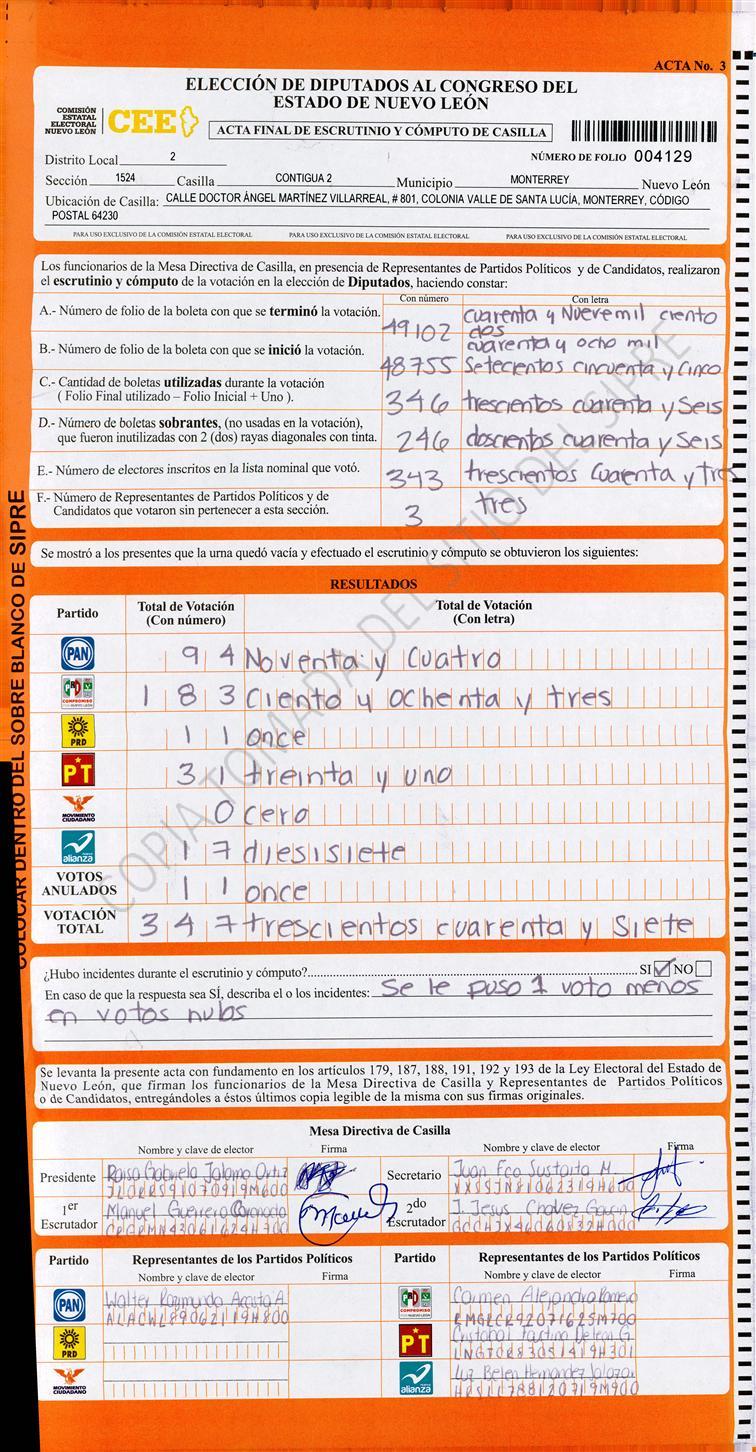 ACTA No. 3
ELECCIÓN DE DIPUTADOS AL CONGRESO DEL
ESTADO DE NUEVO LEÓN
COMISIÓN
ESTATAL
ELECTORAL
NUEVO LEÓN
CEE
ACTA FINAL DE ESCRUTINIO Y CÓMPUTO DE CASILLA
Distrito Local 2
NÚMERO DE FOLIO 004129
Sección 1524 Casilla CONTIGUA 2 Municipio MONTERREY Nuevo León
Ubicación de Casilla: CALLE DOCTOR ÁNGEL MARTÍNEZ VILLARREAL, # 801, COLONIA VALLE DE SANTA LUCÍA, MONTERREY, CÓDIGO
POSTAL 64230
PARA USO EXCLUSIVO DE LA COMISIÓN ESTATAL ELECTORAL PARA USO EXCLUSIVO DE LA COMISIÓN ESTATAL ELECTORAL PARA USO EXCLUSIVO DE LA COMISIÓN ESTATAL ELECTORAL
Los funcionarios de la Mesa Directiva de Casilla, en presencia de Representantes de Partidos Políticos y de Candidatos, realizaron
el escrutinio y cómputo de la votación en la elección de Diputados, haciendo constar:
Con número Con letra
A.- Número de folio de la boleta con que se terminó la votación. 49102 cuarenta y Nueve mil ciento
dos
B.- Número de folio de la boleta con que se inició la votación. 48755 cuarenta y ocho mil
Setecientos cincuenta y cinco
C.- Cantidad de boletas utilizadas durante la votación
( Folio Final utilizado – Folio Inicial + Uno ). 346 trescientos cuarenta y Seis
D.- Número de boletas sobrantes, (no usadas en la votación),
que fueron inutilizadas con 2 (dos) rayas diagonales con tinta. 246 doscientos cuarenta y Seis
E.- Número de electores inscritos en la lista nominal que votó. 343 trescientos Cuarenta y tres
F.- Número de Representantes de Partidos Políticos y de
Candidatos que votaron sin pertenecer a esta sección. 3 tres
Se mostró a los presentes que la urna quedó vacía y efectuado el escrutinio y cómputo se obtuvieron los siguientes:
RESULTADOS
Partido Total de Votación
(Con número) Total de Votación
(Con letra)
PAN 94 Noventa y Cuatro
PRI COMPROMISO 183 Ciento y ochenta y tres
PRD 11 once
PT 31 treinta y uno
MOVIMIENTO CIUDADANO 0 cero
alianza 17 diesisiete
VOTOS
ANULADOS 11 once
VOTACIÓN
TOTAL 347 trescientos cuarenta y Siete
¿Hubo incidentes durante el escrutinio y cómputo? SI ✓ NO
En caso de que la respuesta sea SÍ, describa el o los incidentes: Se le puso 1 voto menos
en votos nulos
Se levanta la presente acta con fundamento en los artículos 179, 187, 188, 191, 192 y 193 de la Ley Electoral del Estado de
Nuevo León, que firman los funcionarios de la Mesa Directiva de Casilla y Representantes de Partidos Políticos
o de Candidatos, entregándoles a éstos últimos copia legible de la misma con sus firmas originales.
Mesa Directiva de Casilla
Nombre y clave de elector Firma Nombre y clave de elector Firma
Presidente
Secretario Juan Fco Sustaita M.
1er
Escrutador Manuel Guerrero Coronado
2do
Escrutador J. Jesus Chavez
Partido Representantes de los Partidos Políticos Partido Representantes de los Partidos Políticos
Nombre y clave de elector Firma Nombre y clave de elector Firma
PAN Walter Raymundo
PRI COMPROMISO Carmen Alejandra Romero
PRD
PT Cristobal Faustino
MOVIMIENTO CIUDADANO
alianza Luz Belen Hernandez
COLOCAR DENTRO DEL SOBRE BLANCO DE SIPRE
COPIA TOMADA DEL SITIO DEL SIPRE